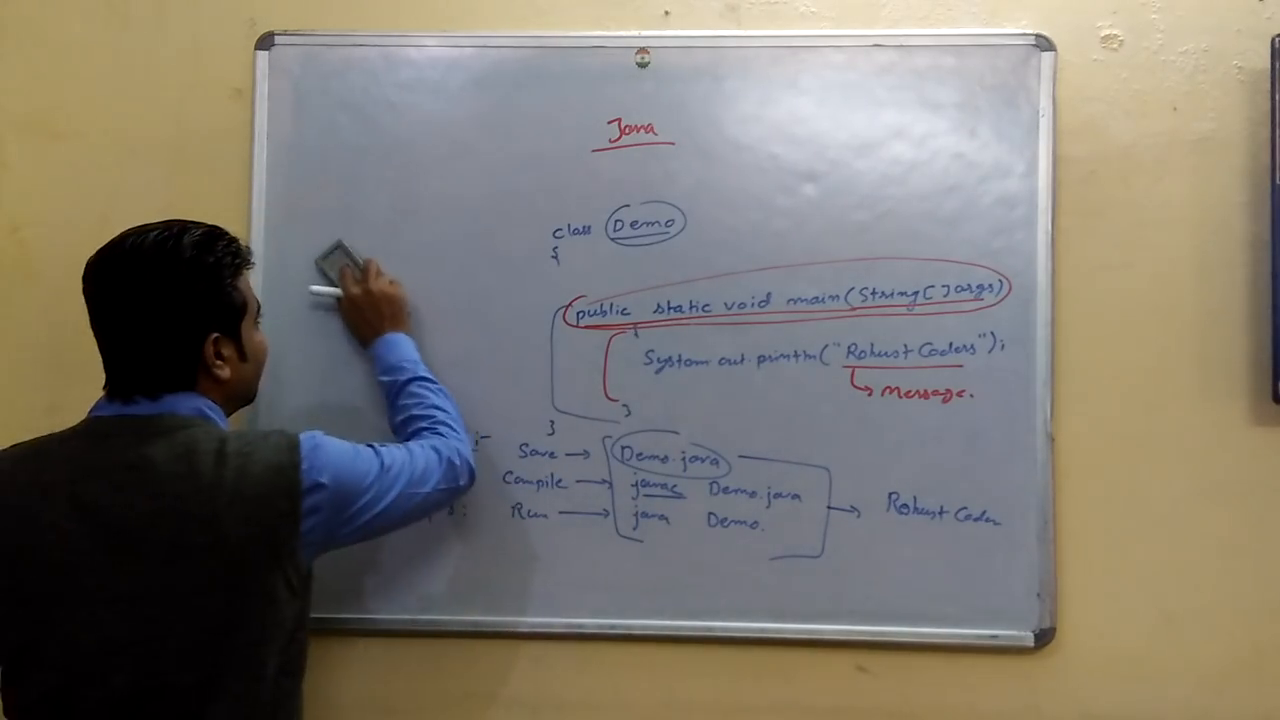 Java
class Demo
{
public static void main(String[]args)
{
System.out.println("Robust Coders");
message.
}
}
:-
Save → Demo.java
Compile → javac Demo.java
Run → java Demo. → Robust Coder